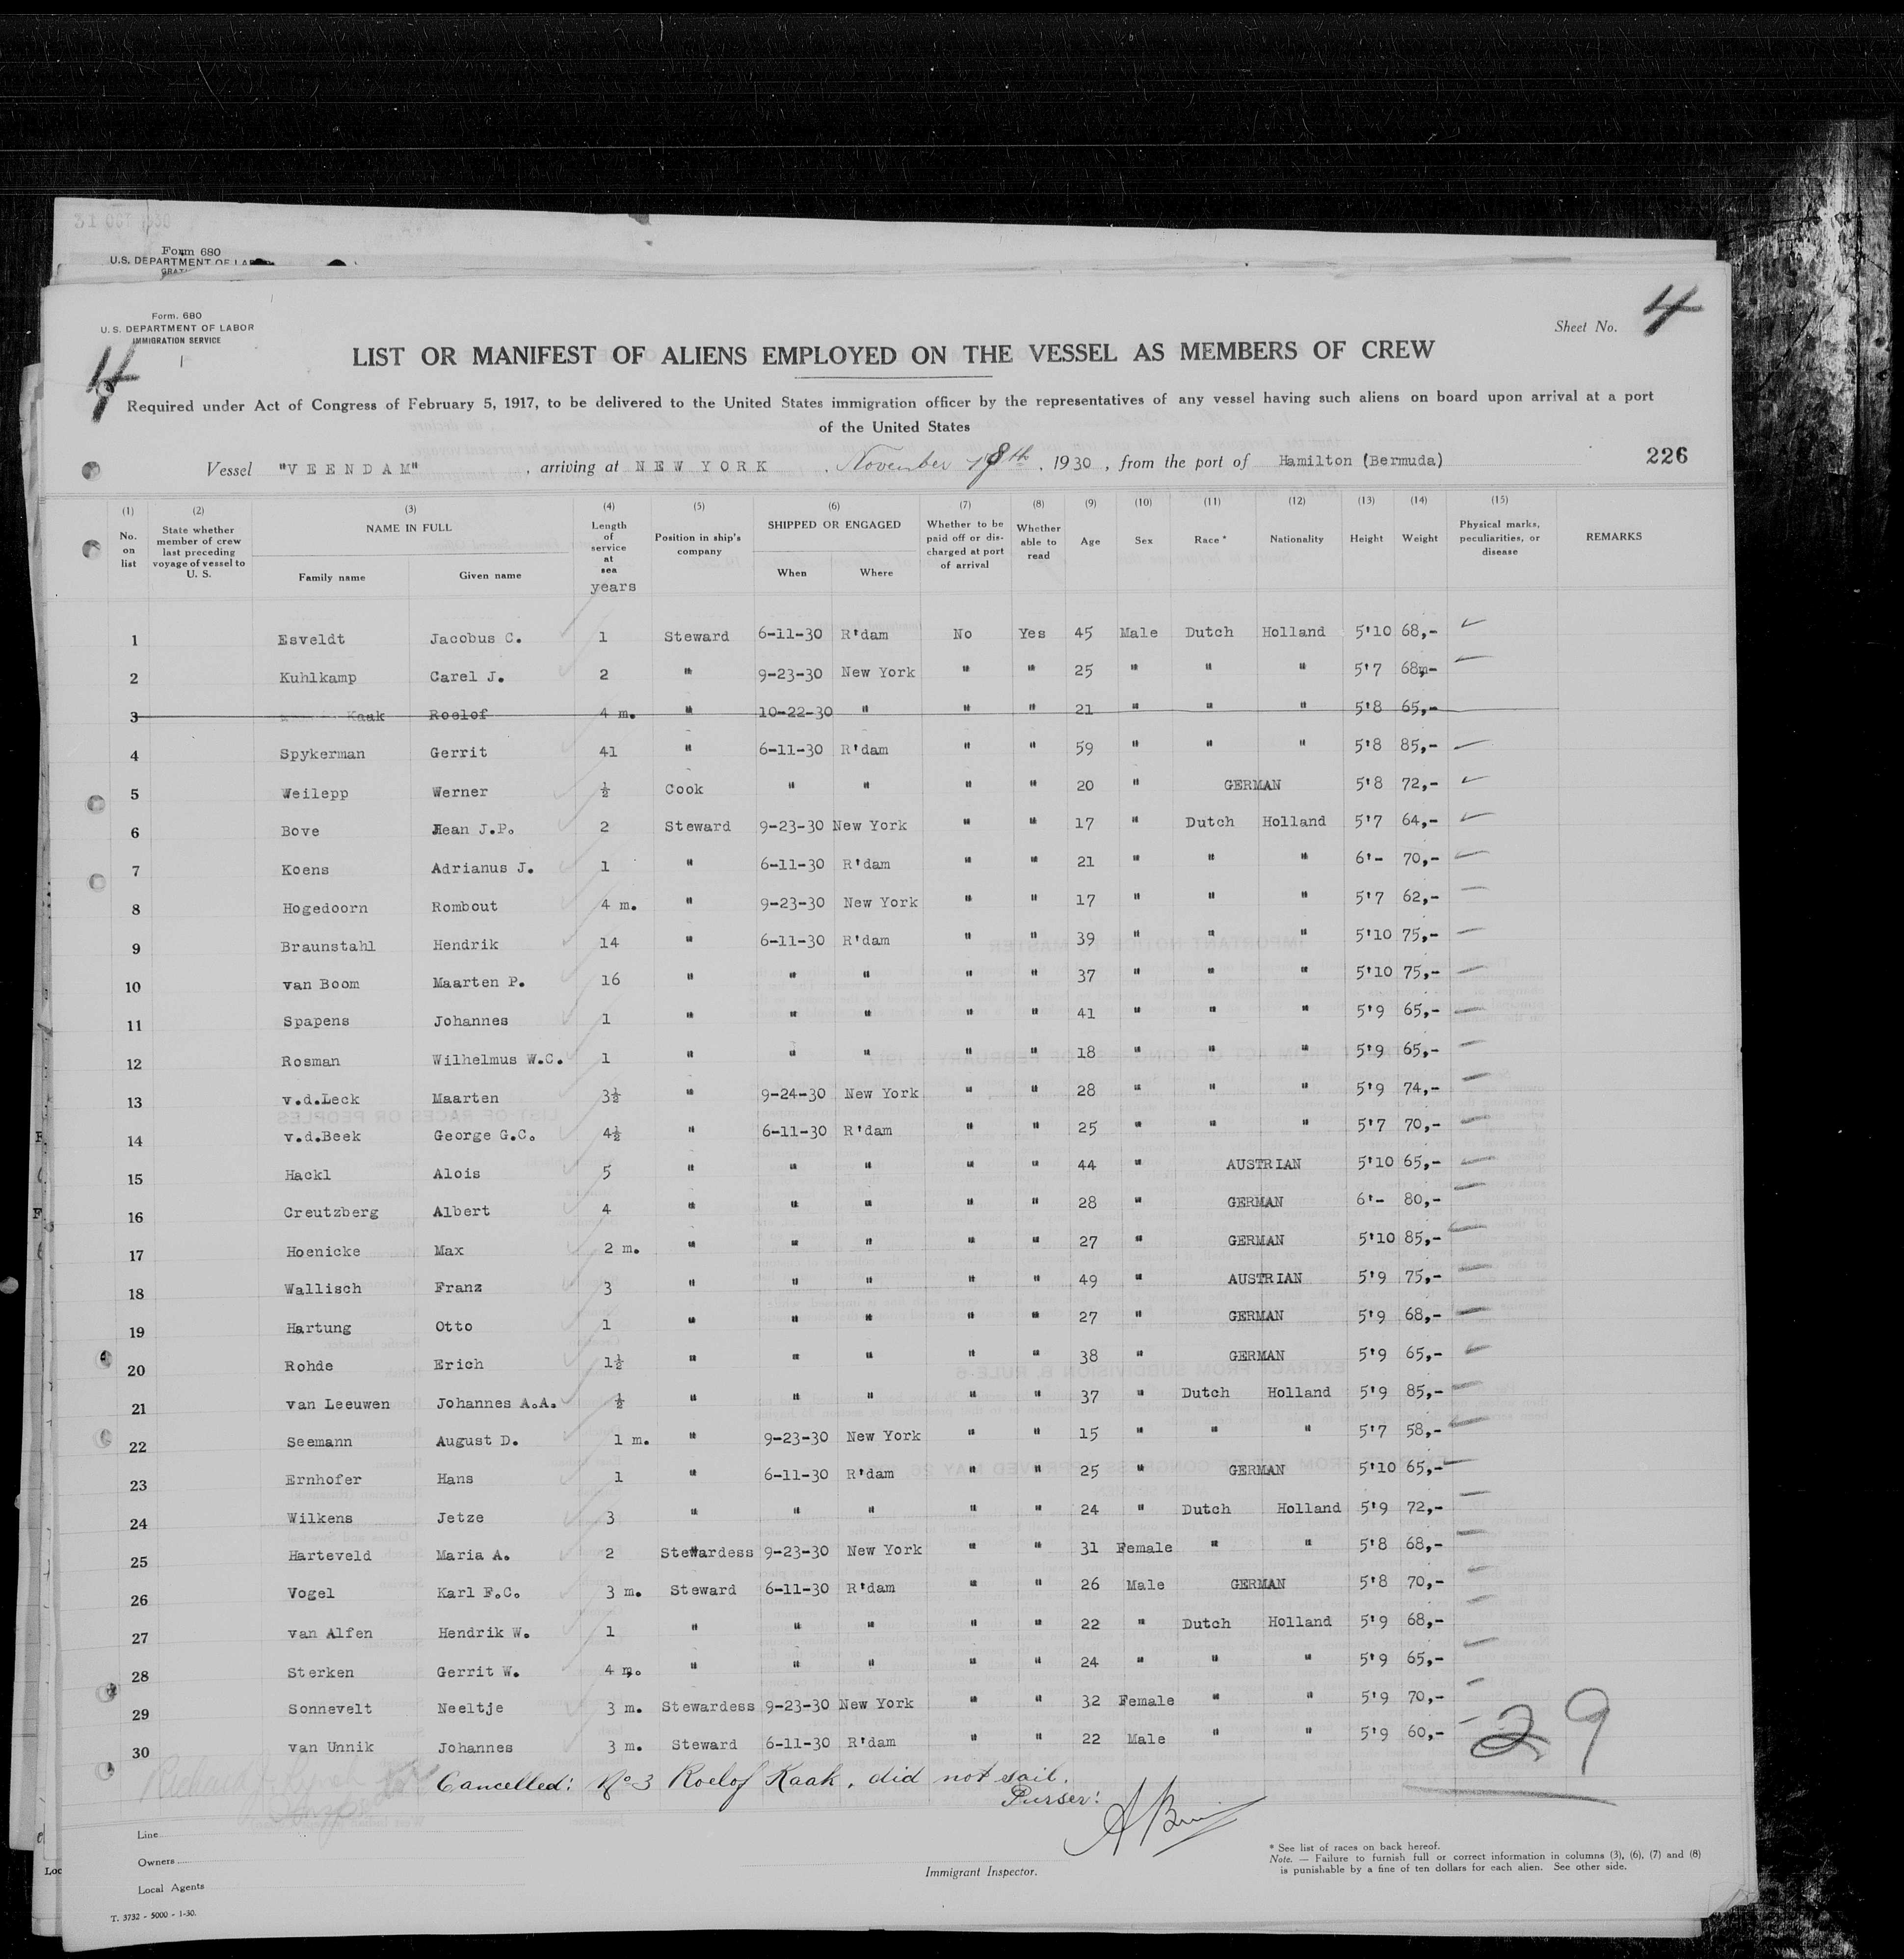 31 OCT 1930
Form 680
U.S. DEPARTMENT OF LABOR
Form. 680
U. S. DEPARTMENT OF LABOR
IMMIGRATION SERVICE
Sheet No. 4
4
LIST OR MANIFEST OF ALIENS EMPLOYED ON THE VESSEL AS MEMBERS OF CREW
Required under Act of Congress of February 5, 1917, to be delivered to the United States immigration officer by the representatives of any vessel having such aliens on board upon arrival at a port
of the United States
Vessel "VEENDAM", arriving at NEW YORK, November 8th, 1930, from the port of Hamilton (Bermuda) 226
(1) (2) (3) (4) (5) (6) (7) (8) (9) (10) (11) (12) (13) (14) (15)
No. on list | State whether member of crew last preceding voyage of vessel to U. S. | NAME IN FULL Family name Given name | Length of service at sea years | Position in ship's company | SHIPPED OR ENGAGED When Where | Whether to be paid off or discharged at port of arrival | Whether able to read | Age | Sex | Race * | Nationality | Height | Weight | Physical marks, peculiarities, or disease | REMARKS
1 Esveldt Jacobus C. 1 Steward 6-11-30 R'dam No Yes 45 Male Dutch Holland 5'10 68,-
2 Kuhlkamp Carel J. 2 " 9-23-30 New York " " 25 " " " 5'7 68,-
3 Kaak Roelof 4 m. " 10-22-30 " " " 21 " " " 5'8 65,-
4 Spykerman Gerrit 41 " 6-11-30 R'dam " " 59 " " " 5'8 85,-
5 Weilepp Werner ½ Cook " " " " 20 " GERMAN 5'8 72,-
6 Bove Jean J.P. 2 Steward 9-23-30 New York " " 17 " Dutch Holland 5'7 64,-
7 Koens Adrianus J. 1 " 6-11-30 R'dam " " 21 " " " 6'- 70,-
8 Hogedoorn Rombout 4 m. " 9-23-30 New York " " 17 " " " 5'7 62,-
9 Braunstahl Hendrik 14 " 6-11-30 R'dam " " 39 " " " 5'10 75,-
10 van Boom Maarten P. 16 " " " " " 37 " " " 5'10 75,-
11 Spapens Johannes 1 " " " " " 41 " " " 5'9 65,-
12 Rosman Wilhelmus W.C. 1 " " " " " 18 " " " 5'9 65,-
13 v.d.Leck Maarten 3½ " 9-24-30 New York " " 28 " " " 5'9 74,-
14 v.d.Beek George G.C. 4½ " 6-11-30 R'dam " " 25 " " " 5'7 70,-
15 Hackl Alois 5 " " " " " 44 " AUSTRIAN 5'10 65,-
16 Creutzberg Albert 4 " " " " " 28 " GERMAN 6'- 80,-
17 Hoenicke Max 2 m. " " " " " 27 " GERMAN 5'10 85,-
18 Wallisch Franz 3 " " " " " 49 " AUSTRIAN 5'9 75,-
19 Hartung Otto 1 " " " " " 27 " GERMAN 5'9 68,-
20 Rohde Erich 1½ " " " " " 38 " GERMAN 5'9 65,-
21 van Leeuwen Johannes A.A. ½ " " " " " 37 " Dutch Holland 5'9 85,-
22 Seemann August D. 1 m. " 9-23-30 New York " " 15 " " " 5'7 58,-
23 Ernhofer Hans 1 " 6-11-30 R'dam " " 25 " GERMAN 5'10 65,-
24 Wilkens Jetze 3 " " " " " 24 " Dutch Holland 5'9 72,-
25 Harteveld Maria A. 2 Stewardess 9-23-30 New York " " 31 Female " " 5'8 68,-
26 Vogel Karl F.C. 3 m. Steward 6-11-30 R'dam " " 26 Male GERMAN 5'8 70,-
27 van Alfen Hendrik W. 1 " " " " " 22 " Dutch Holland 5'9 68,-
28 Sterken Gerrit W. 4 m. " " " " " 24 " " " 5'9 65,-
29 Sonnevelt Neeltje 3 m. Stewardess 9-23-30 New York " " 32 Female " " 5'9 70,-
30 van Unnik Johannes 3 m. Steward 6-11-30 R'dam " " 22 Male " " 5'9 60,-
29
Cancelled: No 3 Roelof Kaak, did not sail.
Purser:
Line
Owners
Local Agents
Immigrant Inspector.
* See list of races on back hereof.
Note. — Failure to furnish full or correct information in columns (3), (6), (7) and (8)
is punishable by a fine of ten dollars for each alien. See other side.
T. 3732 - 5000 - 1-30.